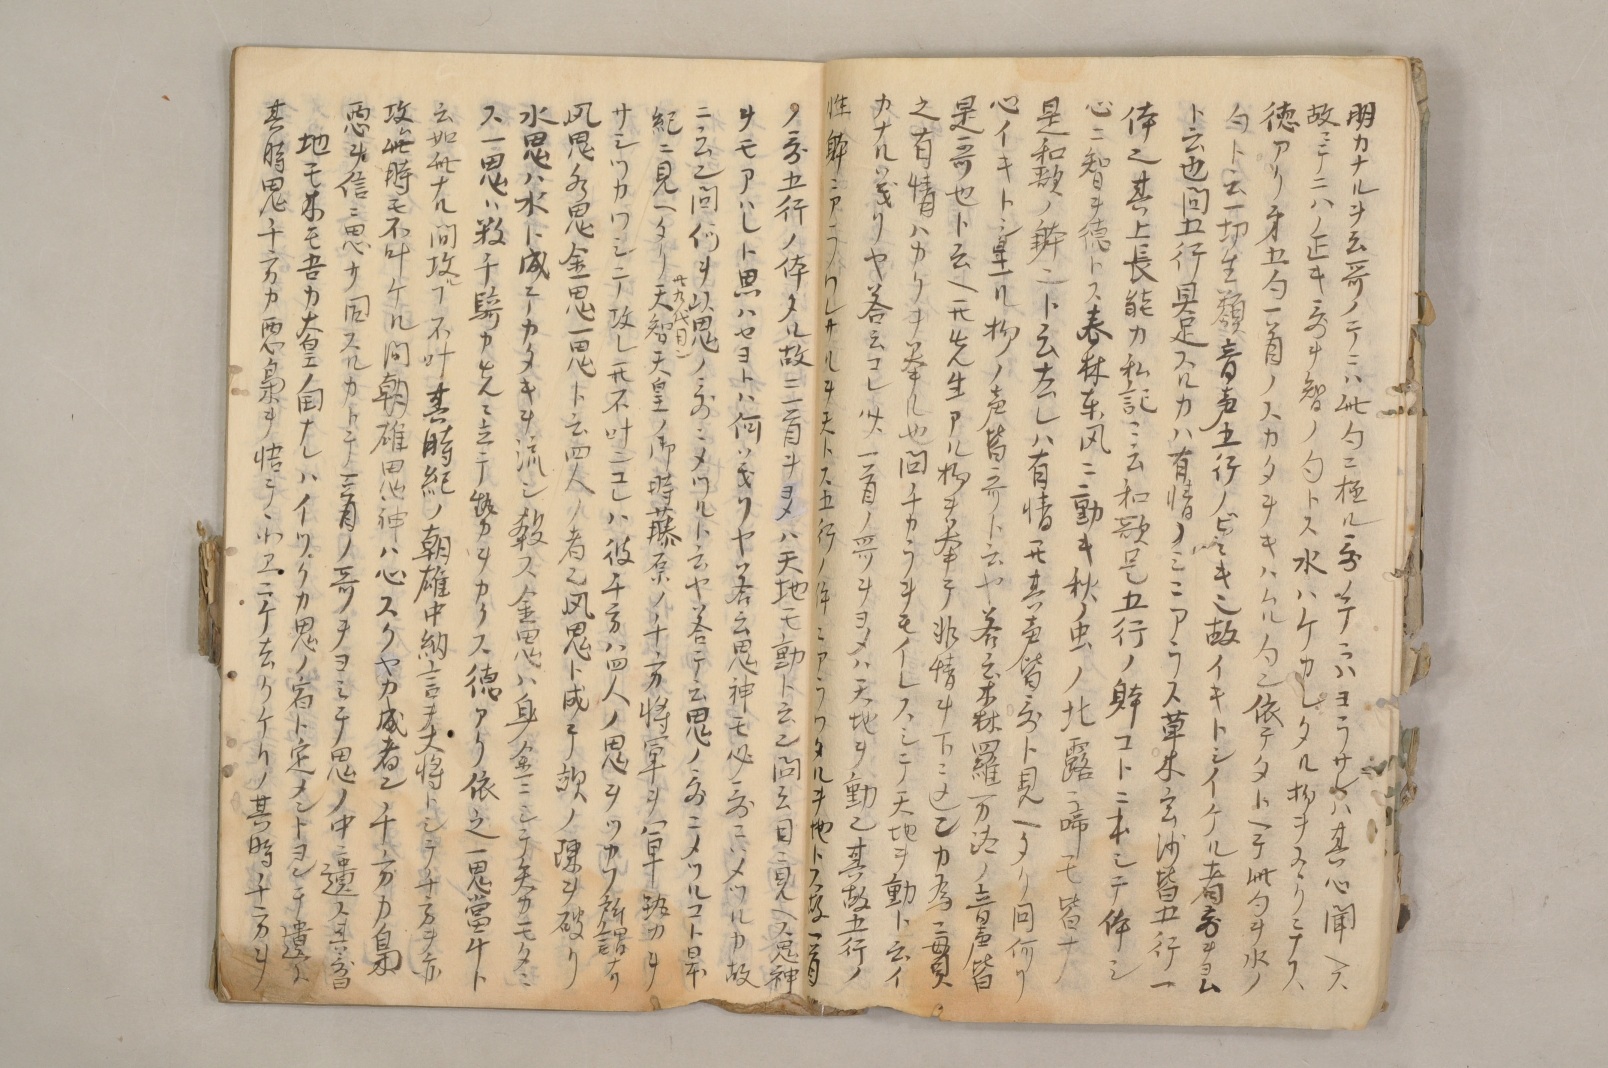 明カナルヲ云哥ノテニハ此句ニ極ル哥ノテニハヨラサレハ其心聞ヘス
故ニテニハノ正キ哥ヲ智ノ句トス水ハケカレタル物ヲスクニナス
徳アリ才五句一首ノスカタヲキハムル句ニ依テタトヘテ此句ヲ水ノ
句ト云一切生類音声五行ノヒヽキ之故イキトシイケル者哥ヲヨム
ト云也問五行具足スルカハ有情ノミニアラス草木玄沙皆五行一
体之其上長能カ私記ニ云和歌是五行ノ躰コトニ本シテ体シ
心ニ智ヲ徳トス春林東風ニ動キ秋ノ虫ノ北露ニ啼モ皆ナ
是和歌ノ躰ニト云左レハ有情モ其声皆哥ト見ヘタリ問何ソ
心イキトシ生ル物ノ声皆哥ト云ヤ答云森羅万法ノ音声皆
是哥也ト云ヘ共先生アル物ヲ挙テ非情ヲ下ニ込ンカ為
之有情ハカリヲ挙ル也問チカラヲモイレスシテ天地ヲ動ト云イ
カナル義リヤ答云コレ必一首ノ哥ヲヨメハ天地ヲ動之其故五行ノ
性躰ニアラワレサルヲ天トス五行ノ体ニアラワタルヲ地トス故一首
ノ哥五行ノ体タル故ニ一首ヲヨメハ天地モ動ト云之問云目ニ見ヘヌ鬼神
ヲモアハレト思ハセヨトハ何ソ義リヤ答云鬼神モ必ノ哥ニメツルカ故
ニ云之問何ヲ以鬼ノ哥ニメツルト云ヤ答テ云鬼ノ哥ニメツルコト日本
紀ニ見ヘタリ天智天皇ノ御時藤原ノ千方将軍ヲ軍勢カヲ
卅九代目ニ
サシツカワシテ攻レ共不叶ニコレハ彼千方ハ四人ノ鬼ヲツカフ所謂ル
風鬼水鬼金鬼一鬼ト云四人ノ者之風鬼ト成テ敵ノ陳ヲ破リ
水鬼ハ水ト成テカタキヲ流シ殺ス金鬼ハ身金ニシテ矢カモタヽ
ス一鬼ハ数千騎カ先ニ立テ勢カヲカクス徳アリ依之一鬼当千ト
云如此ナル間攻下不叶其時紀ノ朝雄中納言ヲ大将トシテ千方ヲ亦
攻此時モ不叶ケル間朝雄思神ハ心スクヤカ成者之千方カ鳥
悪ヲ信ニ思テ同スルカトテ一首ノ哥ヲヨミテ鬼ノ中ニ遣ス其哥曰
地モ木モ吾カ大皇ノ国ナレハイツクカ鬼ノ宿ト定メントヨミテ遣ス
其時鬼千方カ悪梟ヲ悟テニケ去リケリノ其時千方ヲ